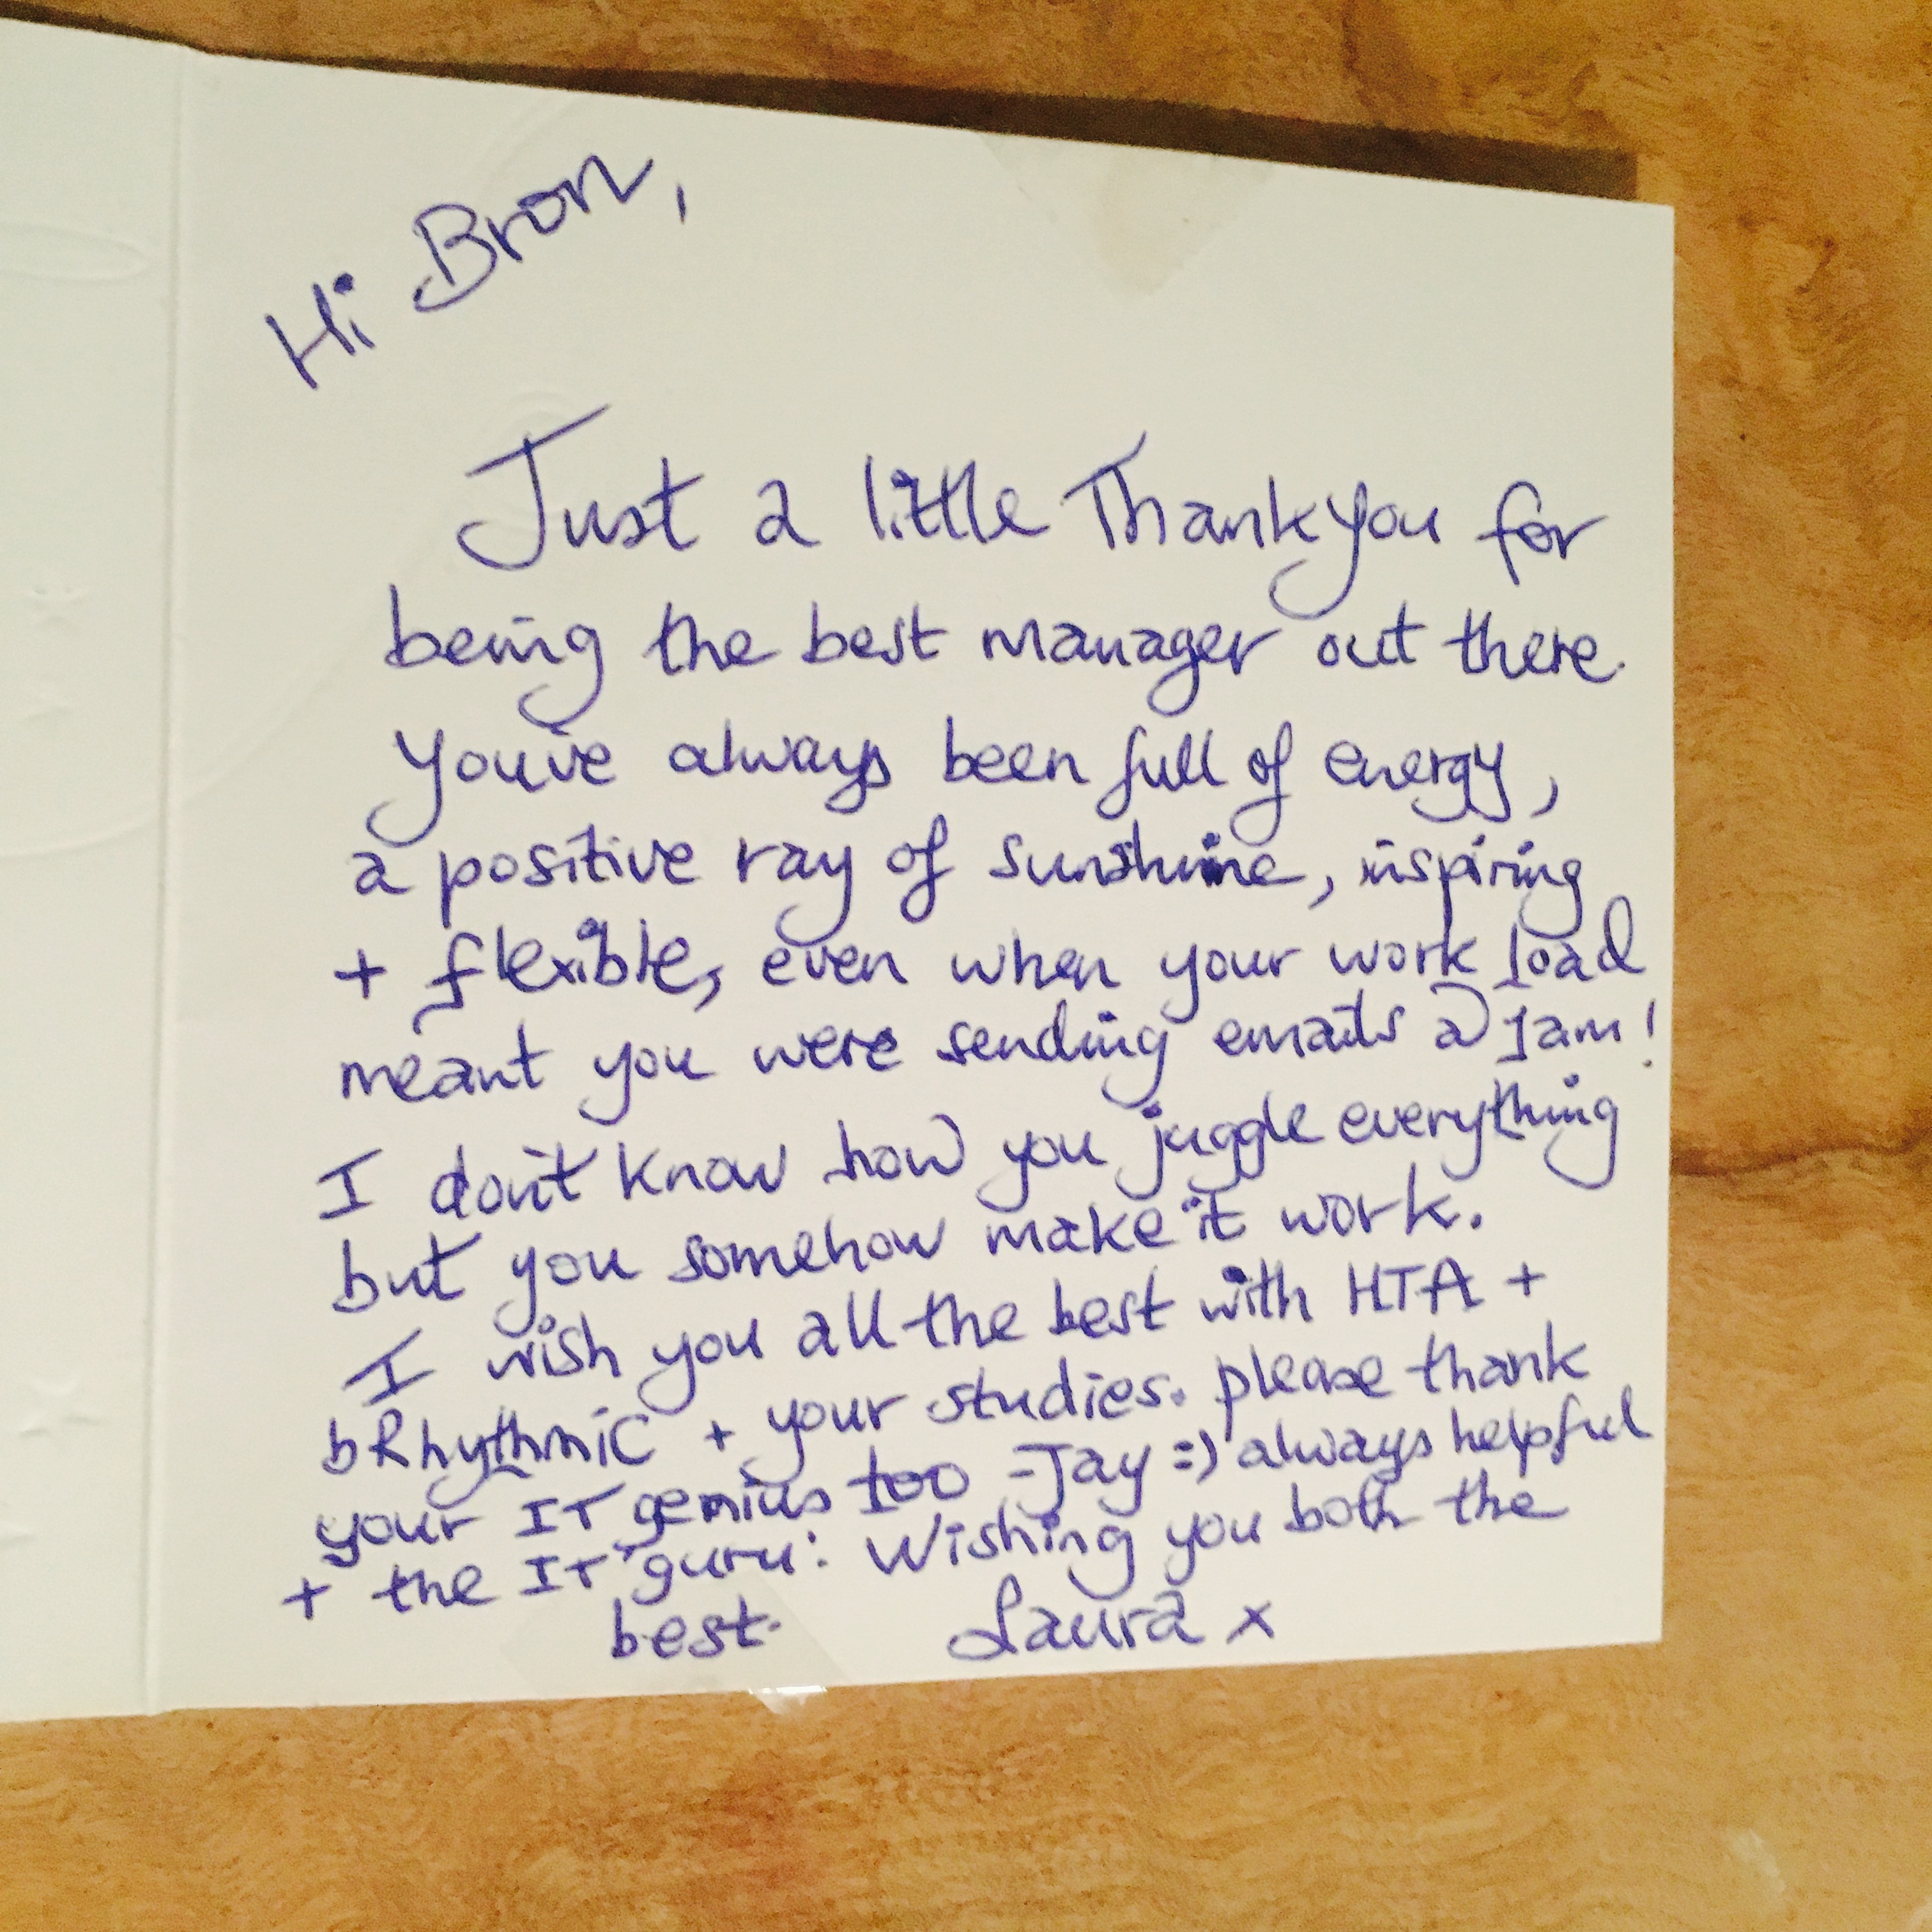 Hi Bron,
Just a little Thankyou for
being the best manager out there.
You've always been full of energy,
a positive ray of sunshine, inspiring
+ flexible, even when your work load
meant you were sending emails @ 1am!
I don't know how you juggle everything
but you somehow make it work.
I wish you all the best with HTA +
bRhythmic + your studies. please thank
your IT genius too - Jay =) always helpful
+ the IT guru! Wishing you both the
best. Laura x